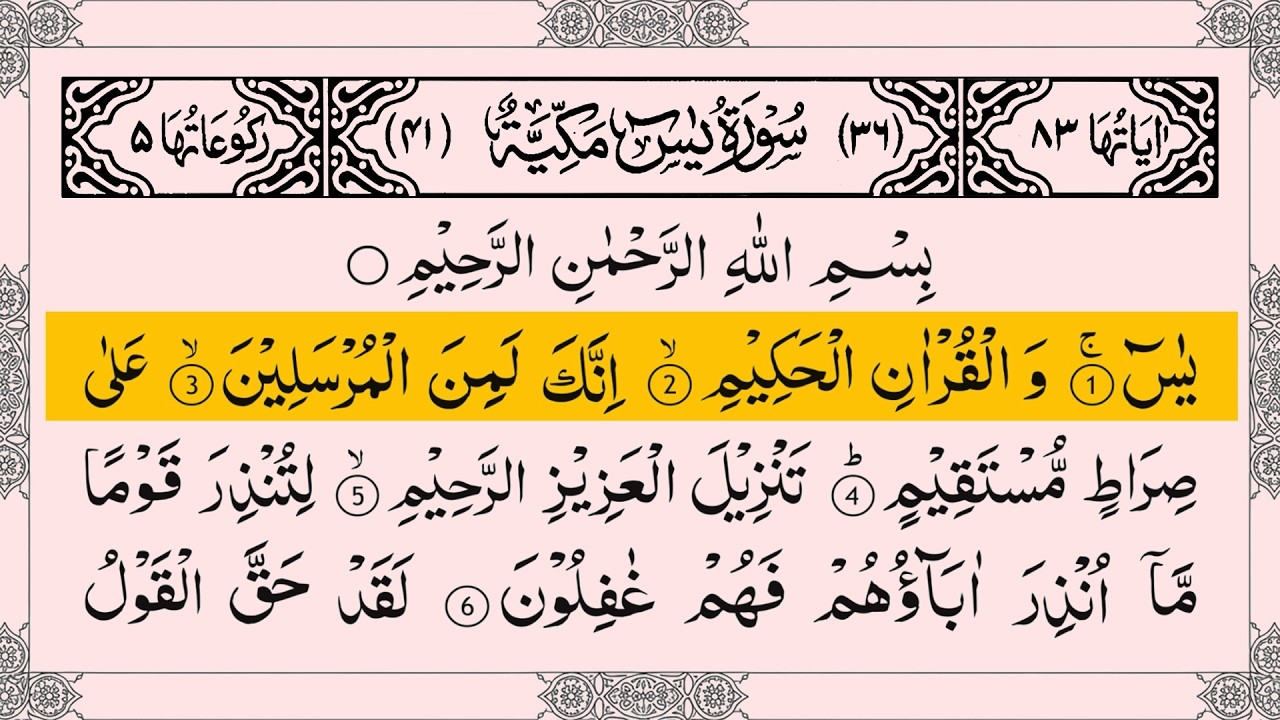 اٰيَاتُهَا ٨٣ (٣٦) سُوْرَةُ يٰسٓ مَكِّيَّةٌ (٤١) رُكُوْعَاتُهَا ٥
بِسْمِ اللّٰهِ الرَّحْمٰنِ الرَّحِيْمِ ۝
يٰسٓ ۚ 1 وَ الْقُرْاٰنِ الْحَكِيْمِ ۙ 2 اِنَّكَ لَمِنَ الْمُرْسَلِيْنَ ۙ 3 عَلٰى
صِرَاطٍ مُّسْتَقِيْمٍ ؕ 4 تَنْزِيْلَ الْعَزِيْزِ الرَّحِيْمِ ۙ 5 لِتُنْذِرَ قَوْمًا
مَّاۤ اُنْذِرَ اٰبَآؤُهُمْ فَهُمْ غٰفِلُوْنَ 6 لَقَدْ حَقَّ الْقَوْلُ